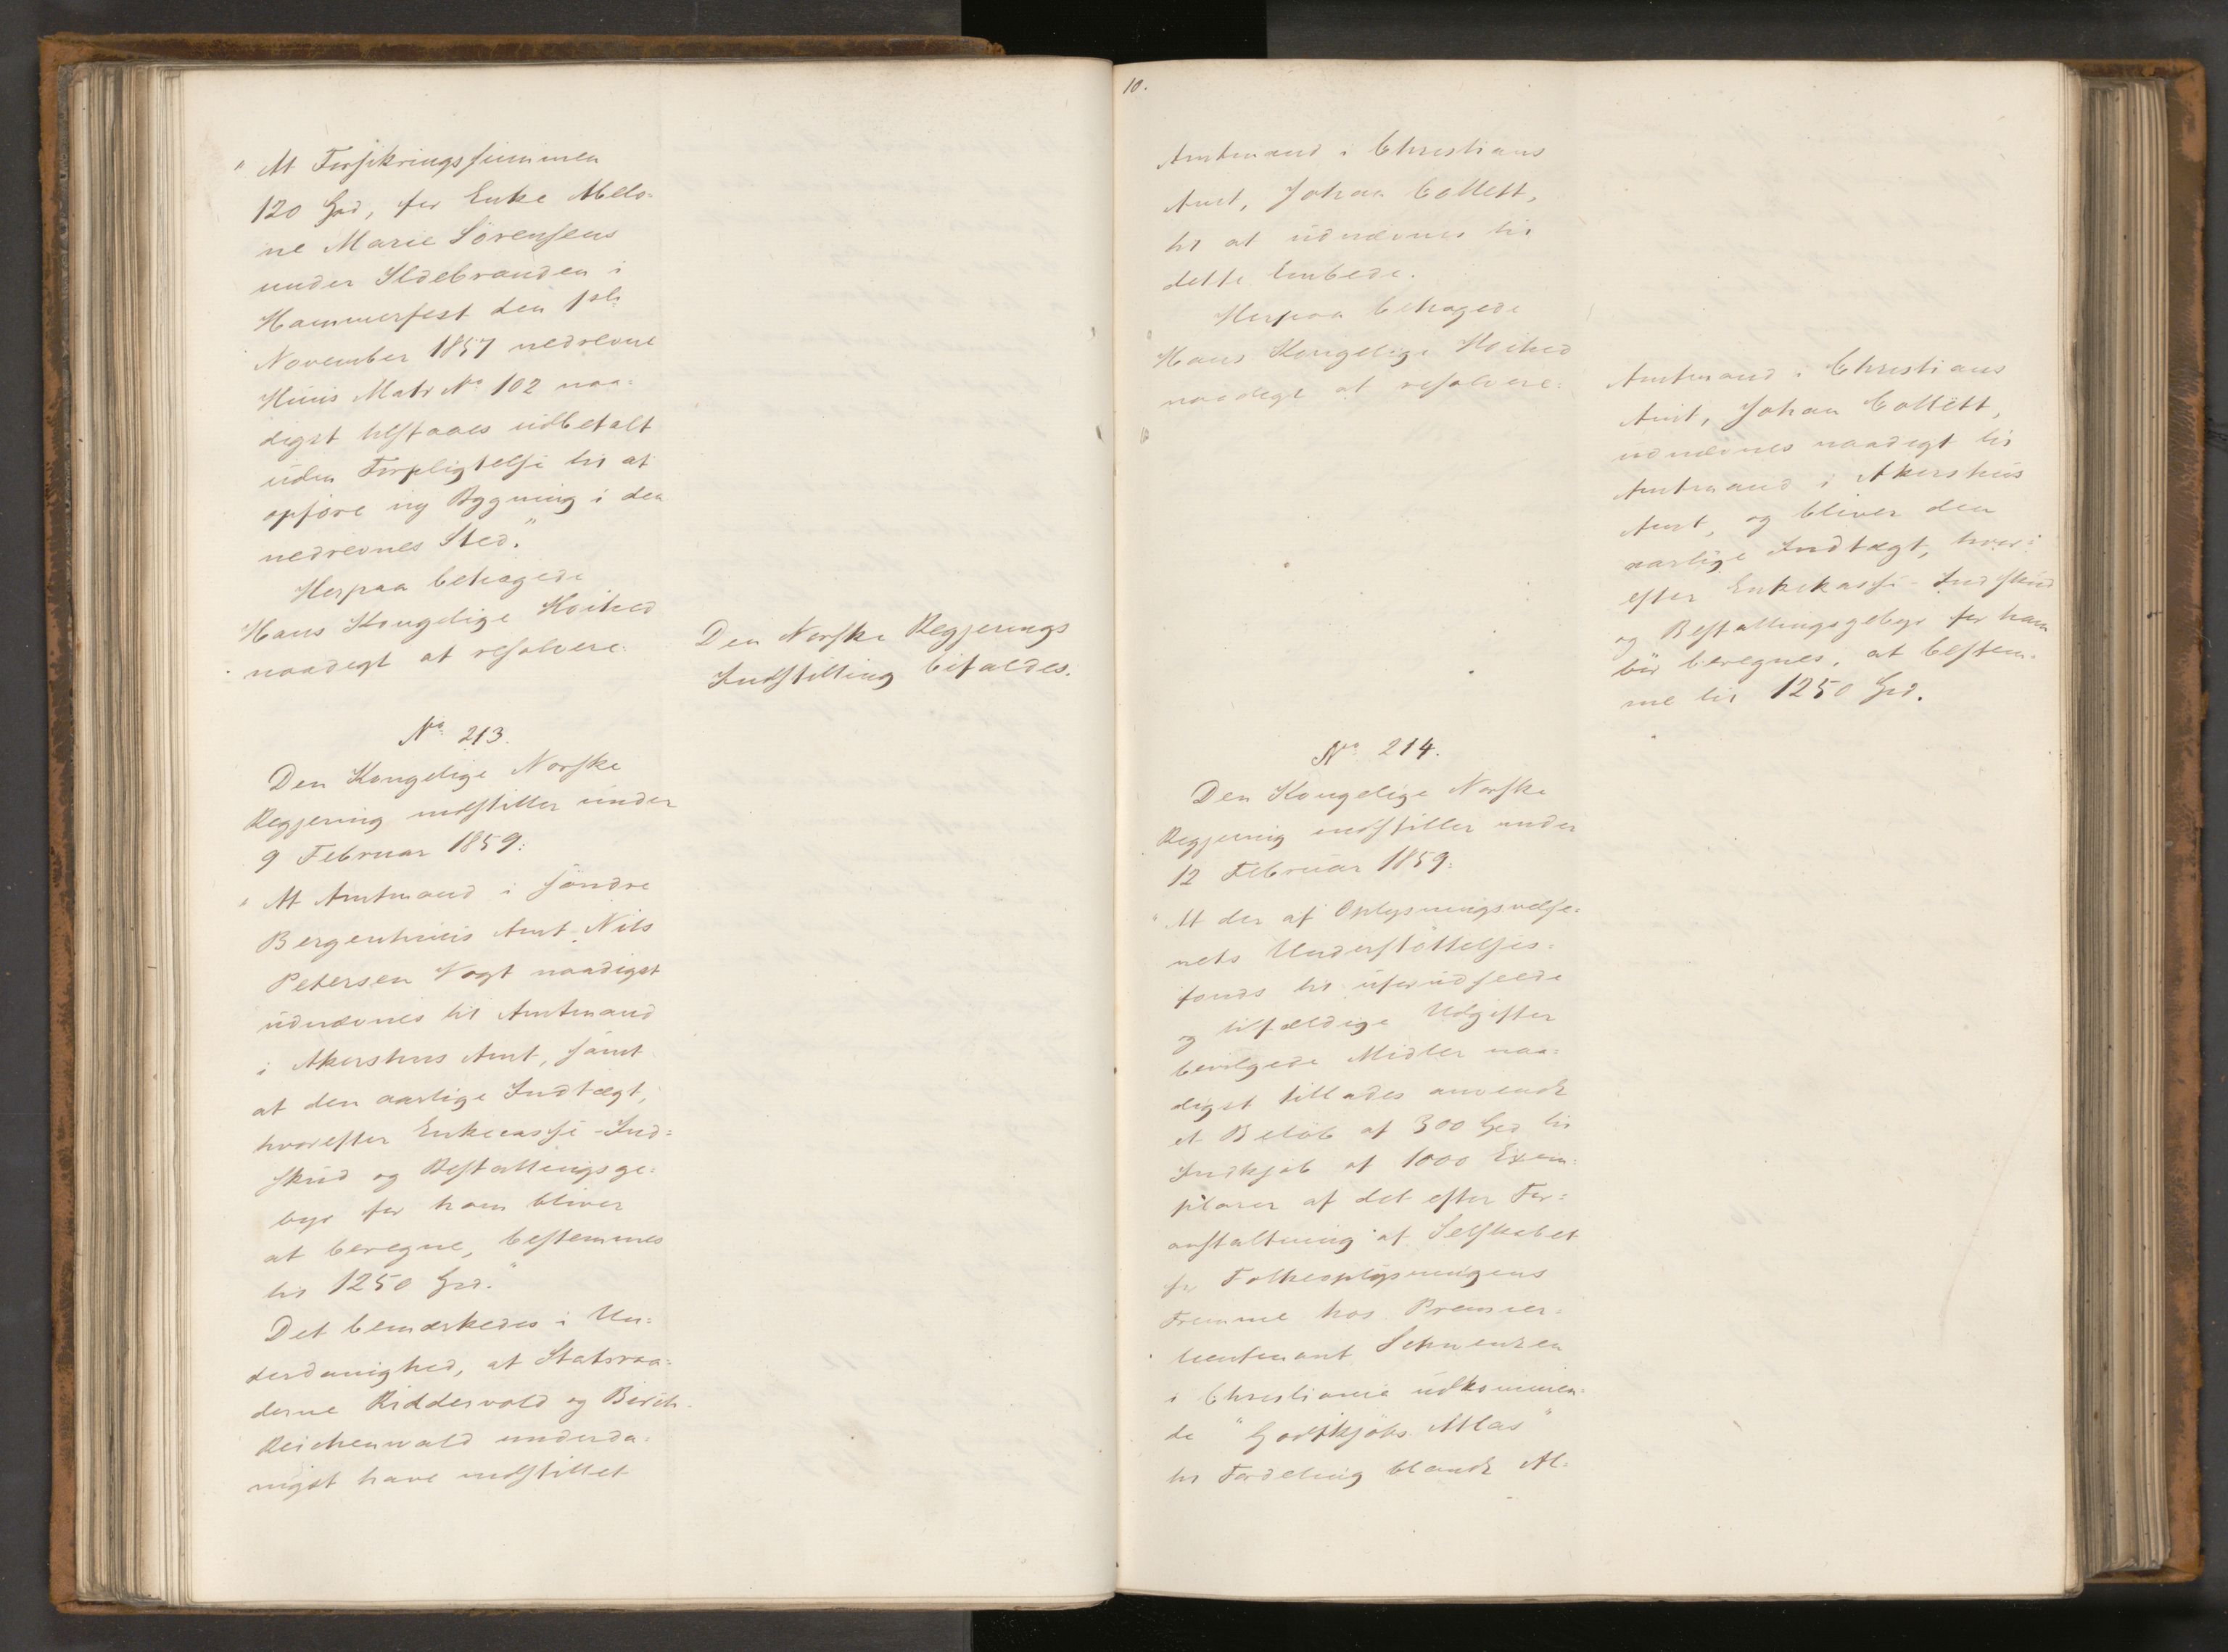 "At Forsikringssummen
120 Spd, for Enke Melo-
ne Marie Sörensens
under Ildebranden i
Hammerfest den 1ste
November 1857 nedrevne
Huus Matr No 102 naa-
digst tilstaaes udbetalt
uden Forpligtelse til at
opføre ny Bygning i den
nedrevnes Sted."
Herpaa behagede
Hans Kongelige Høihed
naadigst at resolvere:
Den Norske Regjerings
Indstilling bifaldes.
No 213.
Den Kongelige Norske
Regjering indstiller under
9 Februar 1859:
"At Amtmand i söndre
Bergenhuus Amt Nils
Petersen Vogt naadigst
udnævnes til Amtmand
i Akershus Amt, samt
at den aarlige Indtægt,
hvorefter Enkecasse-Ind-
skud og Bestallingsge-
byr for ham bliver
at beregne, bestemmes
til 1250 Spd."
Det bemærkedes i Un-
derdanighed, at Statsraa-
derne Riddervold og Birch-
Reichenwald underda-
nigst have indstillet
10.
Amtmand i Christians
Amt, Johan Collett,
til at udnævnes til
dette Embede.
Herpaa behagede
Hans Kongelige Høihed
naadigst at resolvere:
Amtmand i Christians
Amt, Johan Collett,
udnævnes naadigst til
Amtmand i Akershus
Amt, og bliver den
aarlige Indtægt, hvor-
efter Enkekasse-Indskud
og Bestallingsgebyr for ham
bør beregnes, at bestem-
me til 1250 Spd.
No 214.
Den Kongelige Norske
Regjering indstiller under
12 Februar 1859:
"At der af Oplysningsvæse-
nets Understöttelses-
fonds til uforudseede
og tilfældige Udgifter
bevilgede Midler naa-
digst tillades anvendt
et Beløb af 300 Spd til
Indkjøb af 1000 Exem-
plarer af det efter For-
anstaltning af Selskabet
for Folkeoplysningens
Fremme hos Premier-
lieutenant Schwenzen
i Christiania udkommen-
de "Godtkjöbs Atlas"
til Fordeling blandt Al-